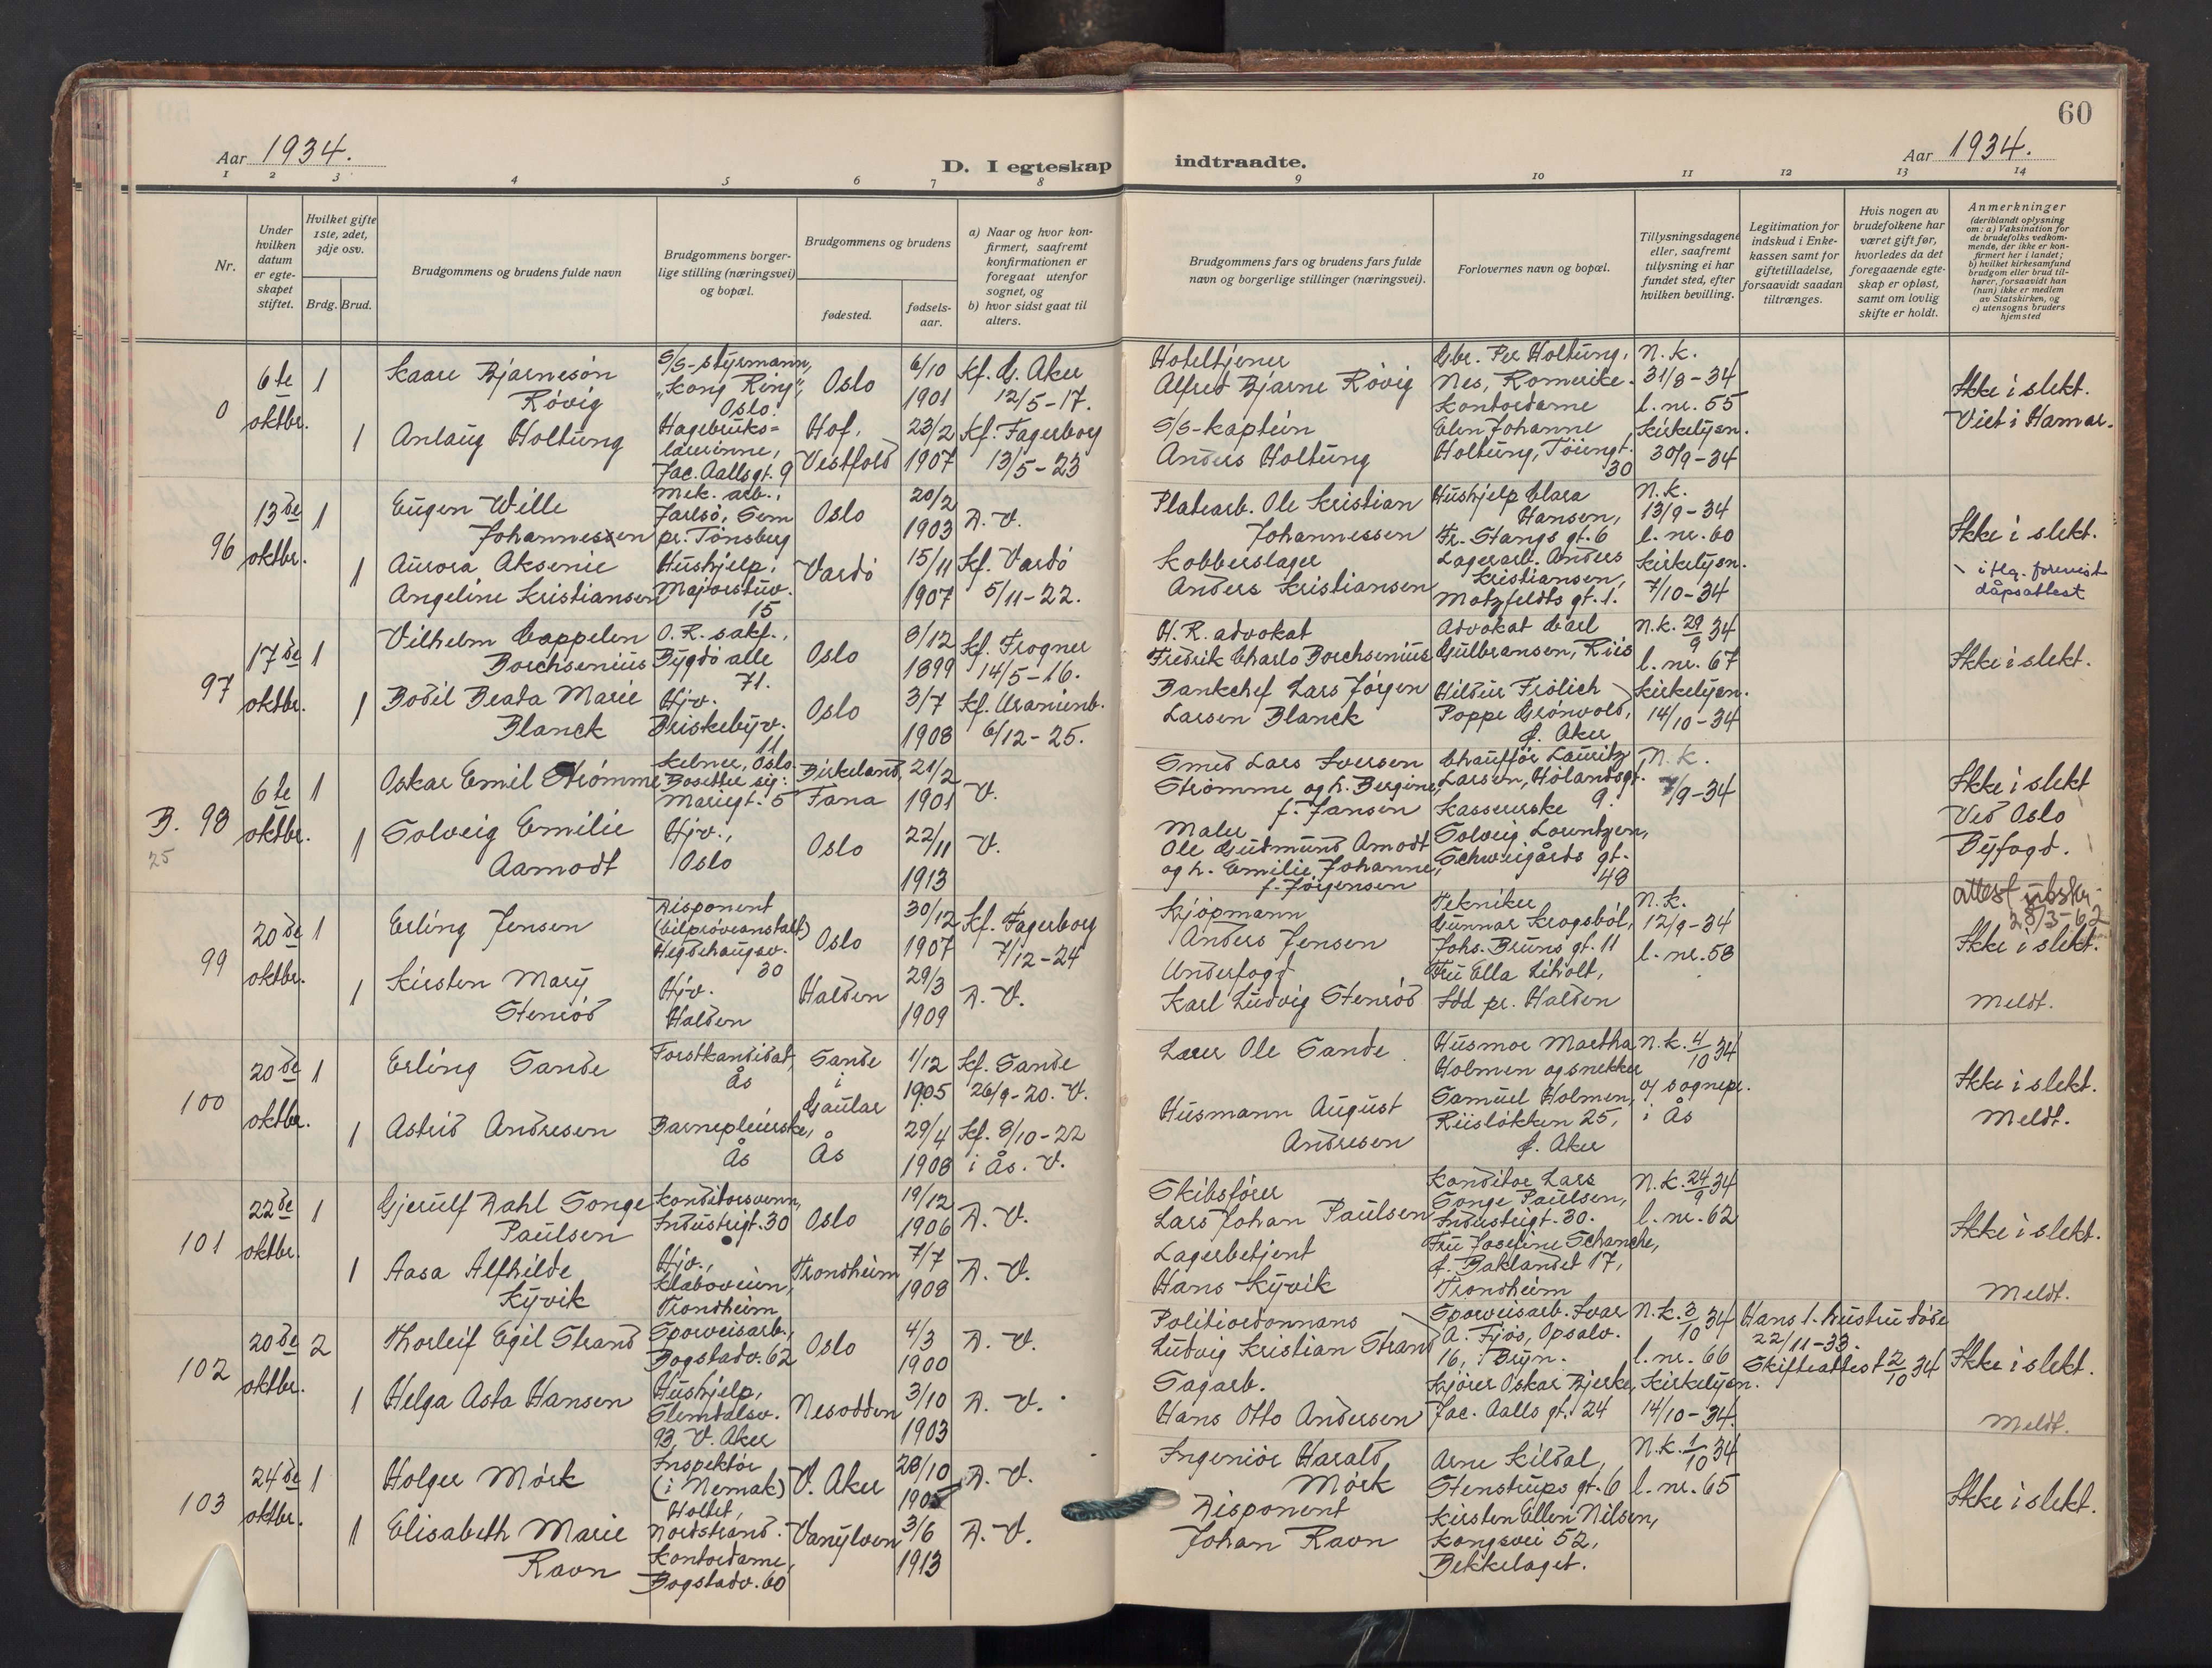 60
Aar 1934.
D. I egteskap indtraadte.
Aar 1934.
1 2 3 4 5 6 7 8 9 10 11 12 13 14
Nr.
Under
hvilken
datum
er egte-
skapet
stiftet.
Hvilket gifte
1ste, 2det,
3dje osv.
Brdg. Brud.
Brudgommens og brudens fulde navn
Brudgommens borger-
lige stilling (næringsvei)
og bopæl.
Brudgommens og brudens
fødested.
fødsels-
aar.
a) Naar og hvor kon-
firmert, saafremt
konfirmationen er
foregaat utenfor
sognet, og
b) hvor sidst gaat til
alters.
Brudgommens fars og brudens fars fulde
navn og borgerlige stillinger (næringsvei).
Forlovernes navn og bopæl.
Tillysningsdagene
eller, saafremt
tillysning ei har
fundet sted, efter
hvilken bevilling.
Legitimation for
indskud i Enke-
kassen samt for
giftetilladelse,
forsaavidt saadan
tiltrænges.
Hvis nogen av
brudefolkene har
været gift før,
hvorledes da det
foregaaende egte-
skap er opløst,
samt om lovlig
skifte er holdt.
Anmerkninger
(deriblandt oplysning
om: a) Vaksination for
de brudefolks vedkom-
mende, der ikke er kon-
firmert her i landet;
b) hvilket kirkesamfund
brudgom eller brud til-
hører, forsaavidt han
(hun) ikke er medlem
av Statskirken, og
c) utensogns bruders
hjemsted
0
6te
oktbr.
1
Kaare Bjarnesøn
Røvig
S/S-styrmann,
"Kong Ring",
Oslo.
Oslo
6/10
1901
Kf. G. Aker
12/5-17.
Hoteltjener
Alfred Bjarne Røvig
Gbr. Per Holtung,
Nes, Romerike.
N.K.
31/8-34
l. nr. 55
Ikke i slekt.
Viet i Hamar.
1
Anlaug Holtung
Hagebruks=
lærerinne,
Jac. Aallsgt. 9
Hof,
Vestfold
23/2
1907
Kf. Fagerborg
13/5-23
S/S-kaptein
Anders Holtung
Kontordame
Elen Johanne
Holtung, Töiengt.
30
Kirkelysn.
30/9-34
96
13de
oktbr.
1
Eugen Wille
Johannessen
Mek. arb.,
Jarlsö, Sem
pr. Tönsberg
Oslo
20/2
1903
D. V.
Platearb. Ole Kristian
Johannessen
Hushjelp Clara
Hansen,
Fr. Stangs gt. 6
N.K.
13/9-34
l. nr. 60
Ikke i slekt.
1
Aurora Aksenie
Angeline Kristiansen
Hushjelp,
Majorstuv.
15
Vardö
15/11
1907
Kf. Vardö
5/11-22.
Kobberslager
Anders Kristiansen
Lagerarb. Anders
Kristiansen,
Motzfeldts gt. 1.
Kirkelysn.
7/10-34
iflg. forevist
dåpsattest
97
17de
oktbr.
1
Vilhelm Cappelen
Borchsenius
O.R. sakf.,
Bygdö alle
71.
Oslo
8/12
1899
Kf. Frogner
14/5-16.
H.R. advokat
Fredrik Charlo Borchsenius
Advokat Carl
Gulbransen, Riis
N.K. 29/9 34
l. nr. 67
Ikke i slekt.
1
Bodil Beata Marie
Blanck
Hjv.
Briskebyv.
11
Oslo
3/7
1908
Kf. Uranienb.
6/12-25.
Bankchef Lars Jörgen
Larsen Blanck
Hildur Frölich
Poppe Grönvold,
Ø. Aker
Kirkelysn.
14/10-34
B. 98
25
6te
oktbr.
1
Oskar Emil Strömme
Kelner, Oslo.
Bosetter sig:
Mariegt. 5
Birkeland,
Fana
21/2
1901
V.
Smed Lars Iversen
Strömme og h. Bergine,
f. Jansen
Chauffør Lauritz
Larsen, Hölandsgt.
9.
N.K.
7/9-34
Ikke i slekt
Ved Oslo
Byfogd.
1
Solveig Emilie
Aamodt
Hjv.,
Oslo
Oslo
22/11
1913
V.
Maler
Ole Gudmund Amodt
og h. Emilie Johanne,
f. Jörgensen
Kassererske
Solveig Lorentzen,
Schweigårds gt.
48
attest utskr.
28/3-62
99
20de
oktbr.
1
Erling Jensen
Disponent
(bilprøveanstalt)
Hegdehaugsv.
30
Oslo
30/12
1907
Kf. Fagerborg
7/12-24
Kjöpmann
Anders Jensen
Tekniker
Gunnar Krogsböl,
Johs. Bruns gt. 11
N.K.
12/9-34
l. nr. 58
Ikke i slekt.
1
Kirsten Mary
Stenröd
Hjv.
Halden
Halden
29/3
1909
D. V.
Underfogd
Karl Ludvig Stenröd
Fru Ella Liholt,
Idd pr. Halden
Meldt.
100
20de
oktbr.
1
Erling Sande
Forstkandidat,
Ås
Sande
i
Gaular
1/12
1905
Kf. Sande
26/9-20. V.
Lærer Ole Sande
Husmor Martha
Holmen og snekker
Samuel Holmen,
Riisløkken 25,
Ø. Aker
N.K. 4/10 34
av sognepr.
i Ås
Ikke i slekt.
Meldt.
1
Astrid Andresen
Barnepleierske,
Ås
Ås
29/4
1908
Kf. 8/10-22
i Ås. V.
Husmann August
Andresen
101
22de
oktbr.
1
Gjerulf Dahl Songe
Paulsen
Konditorsvenn,
Industrigt. 30
Oslo
19/12
1906
D. V.
Skibsfører
Lars Johan Paulsen
Konditor Lars
Songe Paulsen,
Industrigt. 30.
N.K. 24/9 34
l. nr. 62
Ikke i slekt.
1
Aasa Alfhilde
Kyvik
Hjv.,
Klæboveien,
Trondheim
Trondheim
7/7
1908
D. V.
Lagerbetjent
Hans Kyvik
Fru Josefine Schanche,
ø. Baklandet 17,
Trondheim
Meldt.
102
20de
oktbr.
2
Thorleif Egil Strand
Sporveisarb.,
Bogstadv. 62
Oslo
4/3
1900
D. V.
Politiordonnans
Ludvig Kristian Strand
Sporveisarb. Ivar
A. Fjös, Opsalv.
16, Bryn.
N.K. 3/10 34
l. nr. 66
Hans 1. hustru döde
22/11-33.
Skifteattest 2/10 34
Ikke i slekt.
1
Helga Asta Hansen
Hushjelp,
Slemdalsv.
93, V. Aker
Nesodden
3/10
1903
D. V.
Sagarb.
Hans Otto Andersen
Kjörer Oskar Bjerke,
Jac. Aalls gt. 24
Kirkelysn.
14/10-34.
Meldt.
103
24de
oktbr.
1
Holger Mörk
Inspektör
(i Nemak)
Holtet,
Nordstrand.
V. Aker
28/10
1905
D. V.
Ingeniör Harald
Mörk
Arne Kildal,
Stenstrups gt. 6
N.K. 1/10 34
l. nr. 65
Ikke i slekt.
1
Elisabeth Marie
Ravn
Kontordame,
Bogstadv. 60
Vanylven
3/6
1913
D. V.
Disponent
Johan Ravn
Kirsten Ellen Nilsen,
Kongsvei 52,
Bekkelaget.